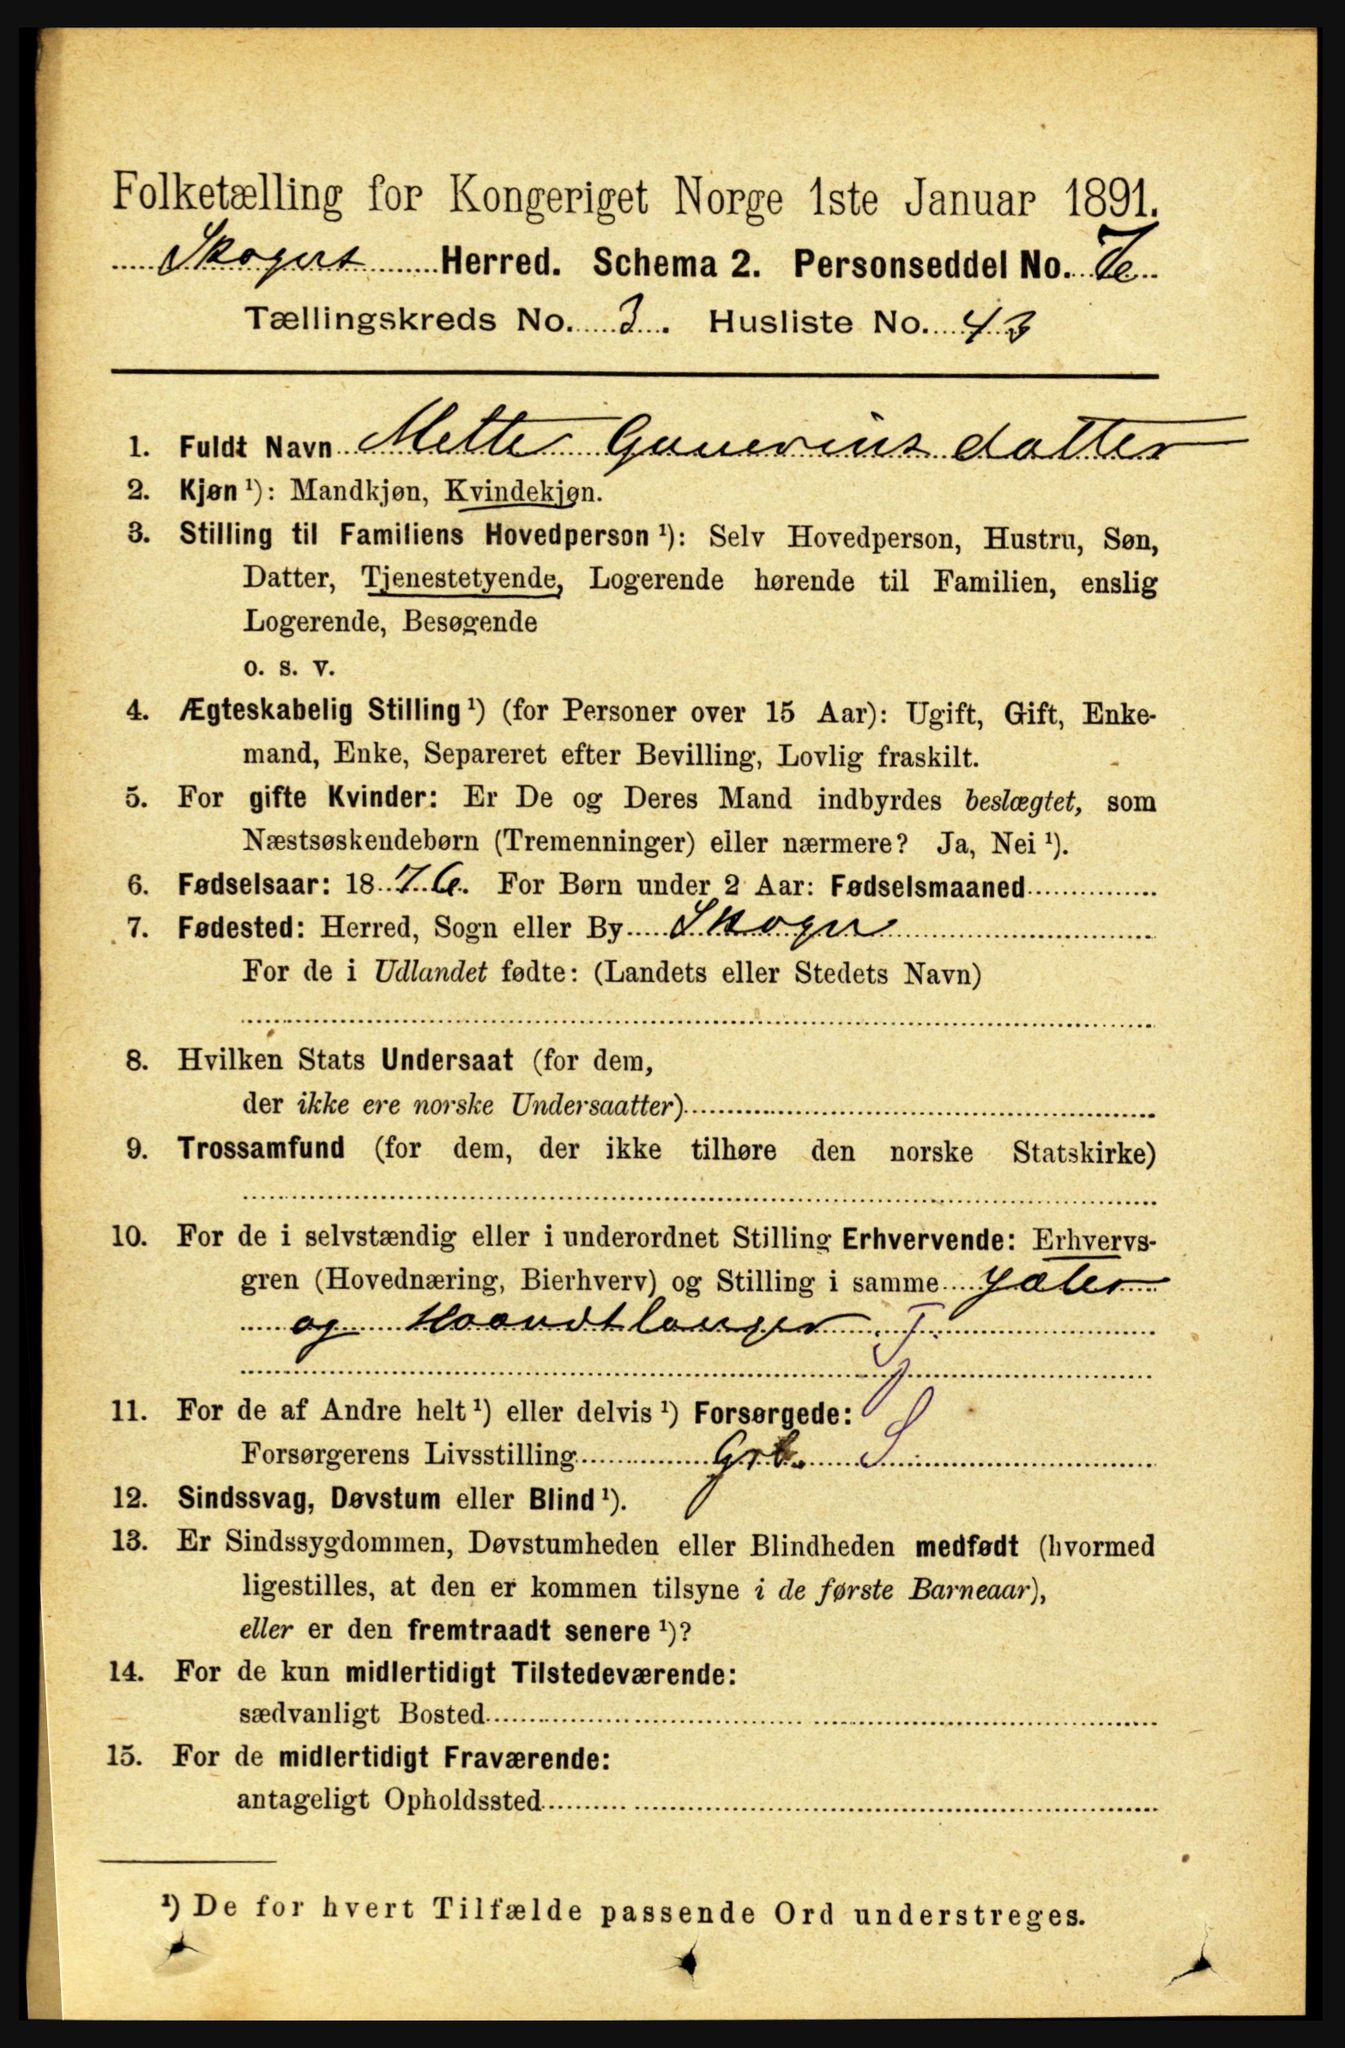 Folketælling for Kongeriget Norge 1ste Januar 1891.
Skogers Herred. Schema 2. Personseddel No.
Tællingskreds No. 3. Husliste No. 43
1. Fuldt Navn Mette Gunerius datter
2. Kjøn ¹): Mandkjøn, Kvindekjøn.
3. Stilling til Familiens Hovedperson ¹): Selv Hovedperson, Hustru, Søn,
Datter, Tjenestetyende, Logerende hørende til Familien, enslig
Logerende, Besøgende
o. s. v.
4. Ægteskabelig Stilling ¹) (for Personer over 15 Aar): Ugift, Gift, Enke-
mand, Enke, Separeret efter Bevilling, Lovlig fraskilt.
5. For gifte Kvinder: Er De og Deres Mand indbyrdes beslægtet, som
Næstsøskendebørn (Tremenninger) eller nærmere? Ja, Nei ¹).
6. Fødselsaar: 1876. For Børn under 2 Aar: Fødselsmaaned
7. Fødested: Herred, Sogn eller By Skoger
For de i Udlandet fødte: (Landets eller Stedets Navn)
8. Hvilken Stats Undersaat (for dem,
der ikke ere norske Undersaatter)
9. Trossamfund (for dem, der ikke tilhøre den norske Statskirke)
10. For de i selvstændig eller i underordnet Stilling Erhvervende: Erhvervs-
gren (Hovednæring, Bierhverv) og Stilling i samme Gjæter
og Haandtlanger T.
11. For de af Andre helt ¹) eller delvis ¹) Forsørgede:
Forsørgerens Livsstilling Grb. S
12. Sindssvag, Døvstum eller Blind ¹).
13. Er Sindssygdommen, Døvstumheden eller Blindheden medfødt (hvormed
ligestilles, at den er kommen tilsyne i de første Barneaar),
eller er den fremtraadt senere ¹)?
14. For de kun midlertidigt Tilstedeværende:
sædvanligt Bosted
15. For de midlertidigt Fraværende:
antageligt Opholdssted
¹) De for hvert Tilfælde passende Ord understreges.